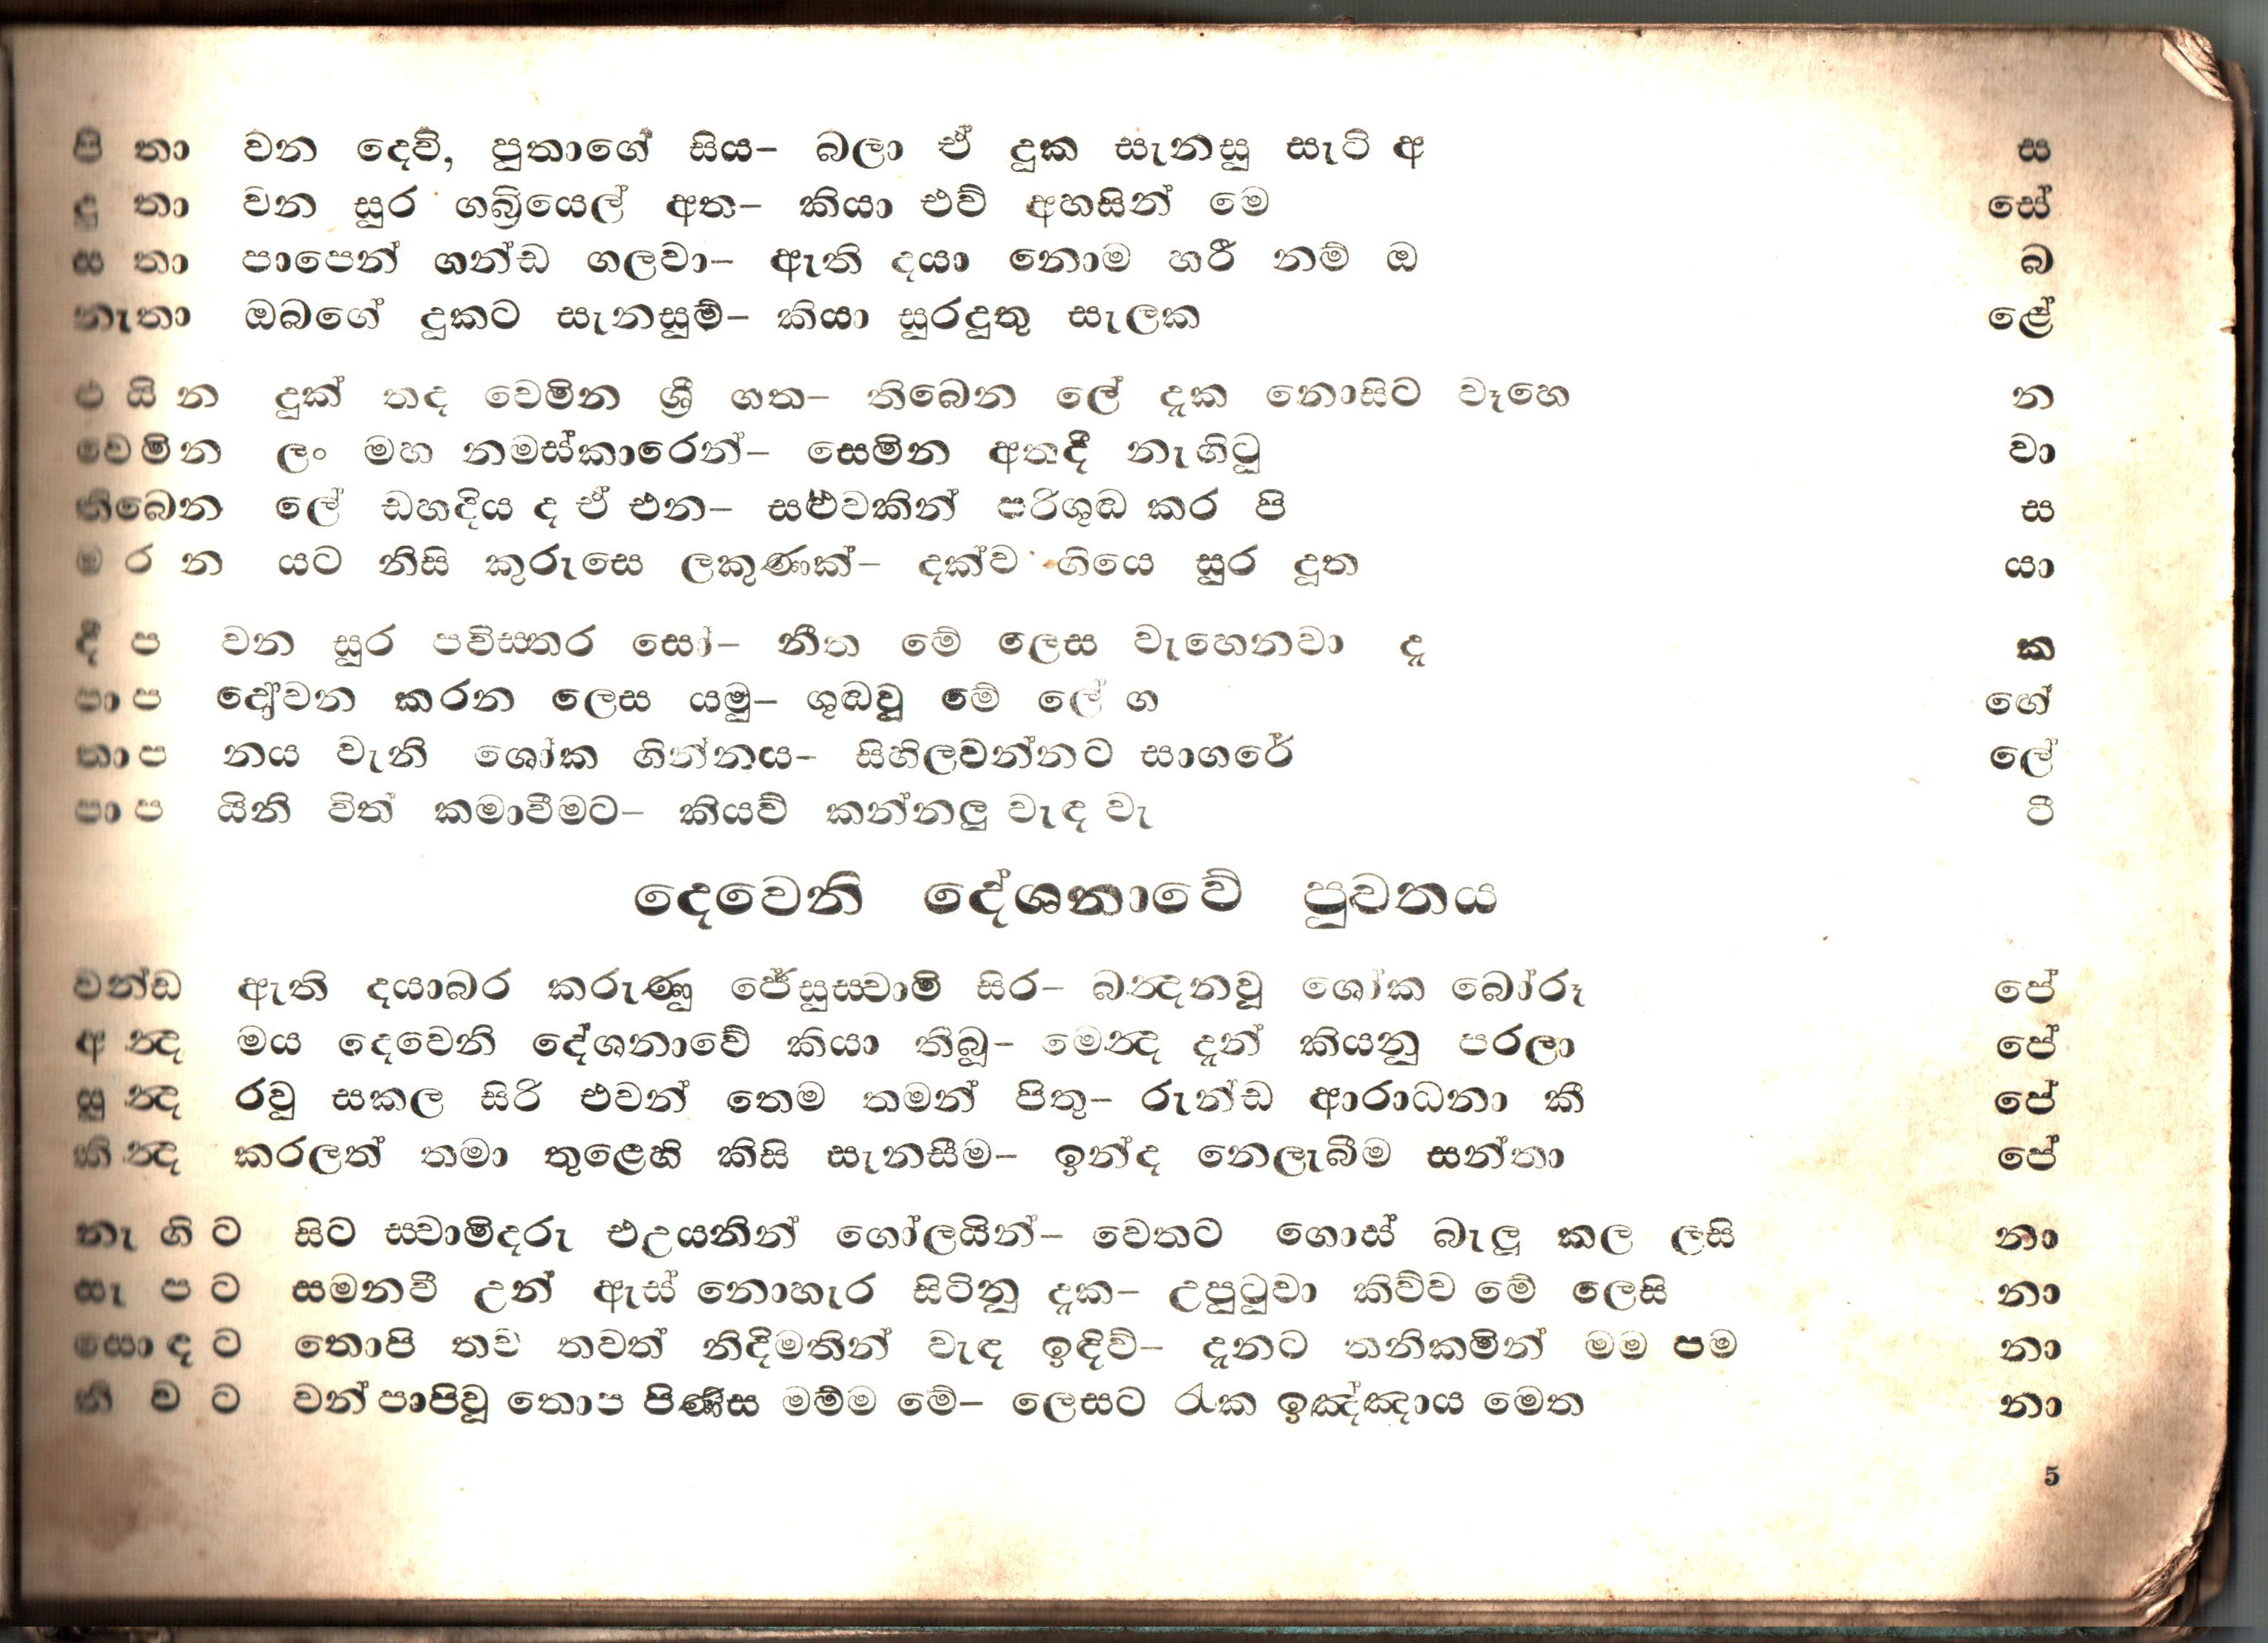 පි තා වන දෙවි, පුතාගේ සිය- බලා ඒ දුක සැනසු සැටි අ ස
දු තා වන සුර ගබ්‍රියෙල් අත- කියා එව් අහසින් මෙ සේ
ස තා පාපෙන් ගන්ඩ ගලවා- ඇති දයා නොම හරී නම් ඔ බ
නැතා ඔබගේ දුකට සැනසුම්- කියා සුරදුතු සැලක ළේ
එ යි න දුක් තද වෙමින ශ්‍රී ගත- තිබෙන ලේ දැක නොසිට වෑහෙ න
වෙමින ලං මහ නමස්කාරෙන්- සෙමින අතදී නැගිටු වා
තිබෙන ලේ ඩහදිය ද ඒ එන- සළුවකින් පරිශුඬ කර පි ස
ම ර න යට නිසි කුරුසෙ ලකුණක්- දක්ව ගියෙ සුර දූත යා
දී ප වන සුර පවිස්තර සෝ- නීත මේ ලෙස වැහෙනවා දැ ක
පා ප දෝවන කරන ලෙස යමු- ශුඬවූ මේ ලේ ග ඟේ
තාප නය වැනි ශෝක ගින්නය- සිහිලවන්නට සාගරේ ලේ
පා ප යිනි විත් කමාවීමට- කියව් කන්නලු වැඳ වැ ටී
දෙවෙනි දේශනාවේ පුවතය
වන්ඩ ඇති දයාබර කරුණු ජේසුස්වාමි සිර- බඤනවූ ශෝක බෝරූ පේ
අ ඤ මය දෙවෙනි දේශනාවේ කියා තිබූ- මෙඤ දැන් කියනු පරලා පේ
සු ඤ රවු සකල සිරි එවන් තෙම තමන් පිතු- රුන්ඩ ආරාධනා කී පේ
කි ඤ කරලත් තමා තුළෙහි කිසි සැනසීම- ඉන්ද නෙලැබීම සන්තා පේ
නැ ගි ට සිට ස්වාමිදරු එඋයනින් ගෝලයින්- වෙතට ගොස් බැලූ කල ලසි නා
සැ ප ට සමනවී උන් ඇස් නොහැර සිටිනු දැක- උපුටුවා කිව්ව මේ ලෙසි නා
සොඳ ට තොපි තව තවත් නිදිමතින් වැඳ ඉඳිව්- දැනට තනිකමින් මම පම නා
නි ව ට වන් පාපිවූ තොප පිණිස මම්ම මේ- ලෙසට රැක ඉඤ්ඤය මෙත නා
5